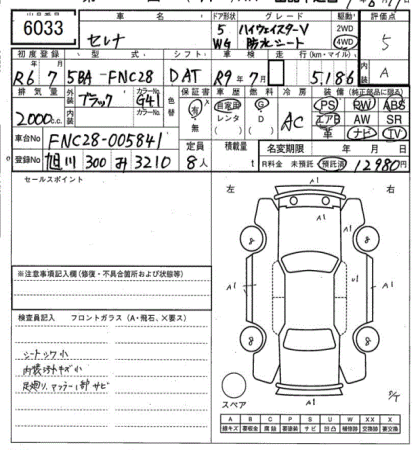 6033
車名 ドア形状 グレード 駆動 評価点
セレナ 5 WG ハイウェイスターV 防水シート 2WD 4WD 5
初度登録 型式 シフト 車検 走行(km・マイル) 内装
R6 7 5BA-FNC28 DAT R9年7月 5,186 A
排気量 外装 色 カラーNo. 色替 保証書 車歴 燃料 冷房 装備(純正部品に限る)
2000c.c. ブラック G41 有・無 自家用 レンタ ( ) G D ( ) AC PS PW ABS
内装 カラーNo. エアB AW SR
革 ナビ TV
車台No FNC28-005841 定員 積載量 名変期限 年 月 日
登録No 旭川 300 み 3210 8人 t R料金 未預託 預託済 12980円
セールスポイント
左 右
A1
A1 A1
8 8
A1 A1 A1
8 8
※注意事項記入欄(修復・不具合箇所および状態等)
検査員記入 フロントガラス(A・飛石、×要ス)
シートシワ小
内張ウチキズ小
足廻り、マフラー1部サビ
スペア
A B C P S U W X XX
線キズ 要板金 腐蝕 要塗装 サビ 凹凸 補修跡 交換跡 要交換